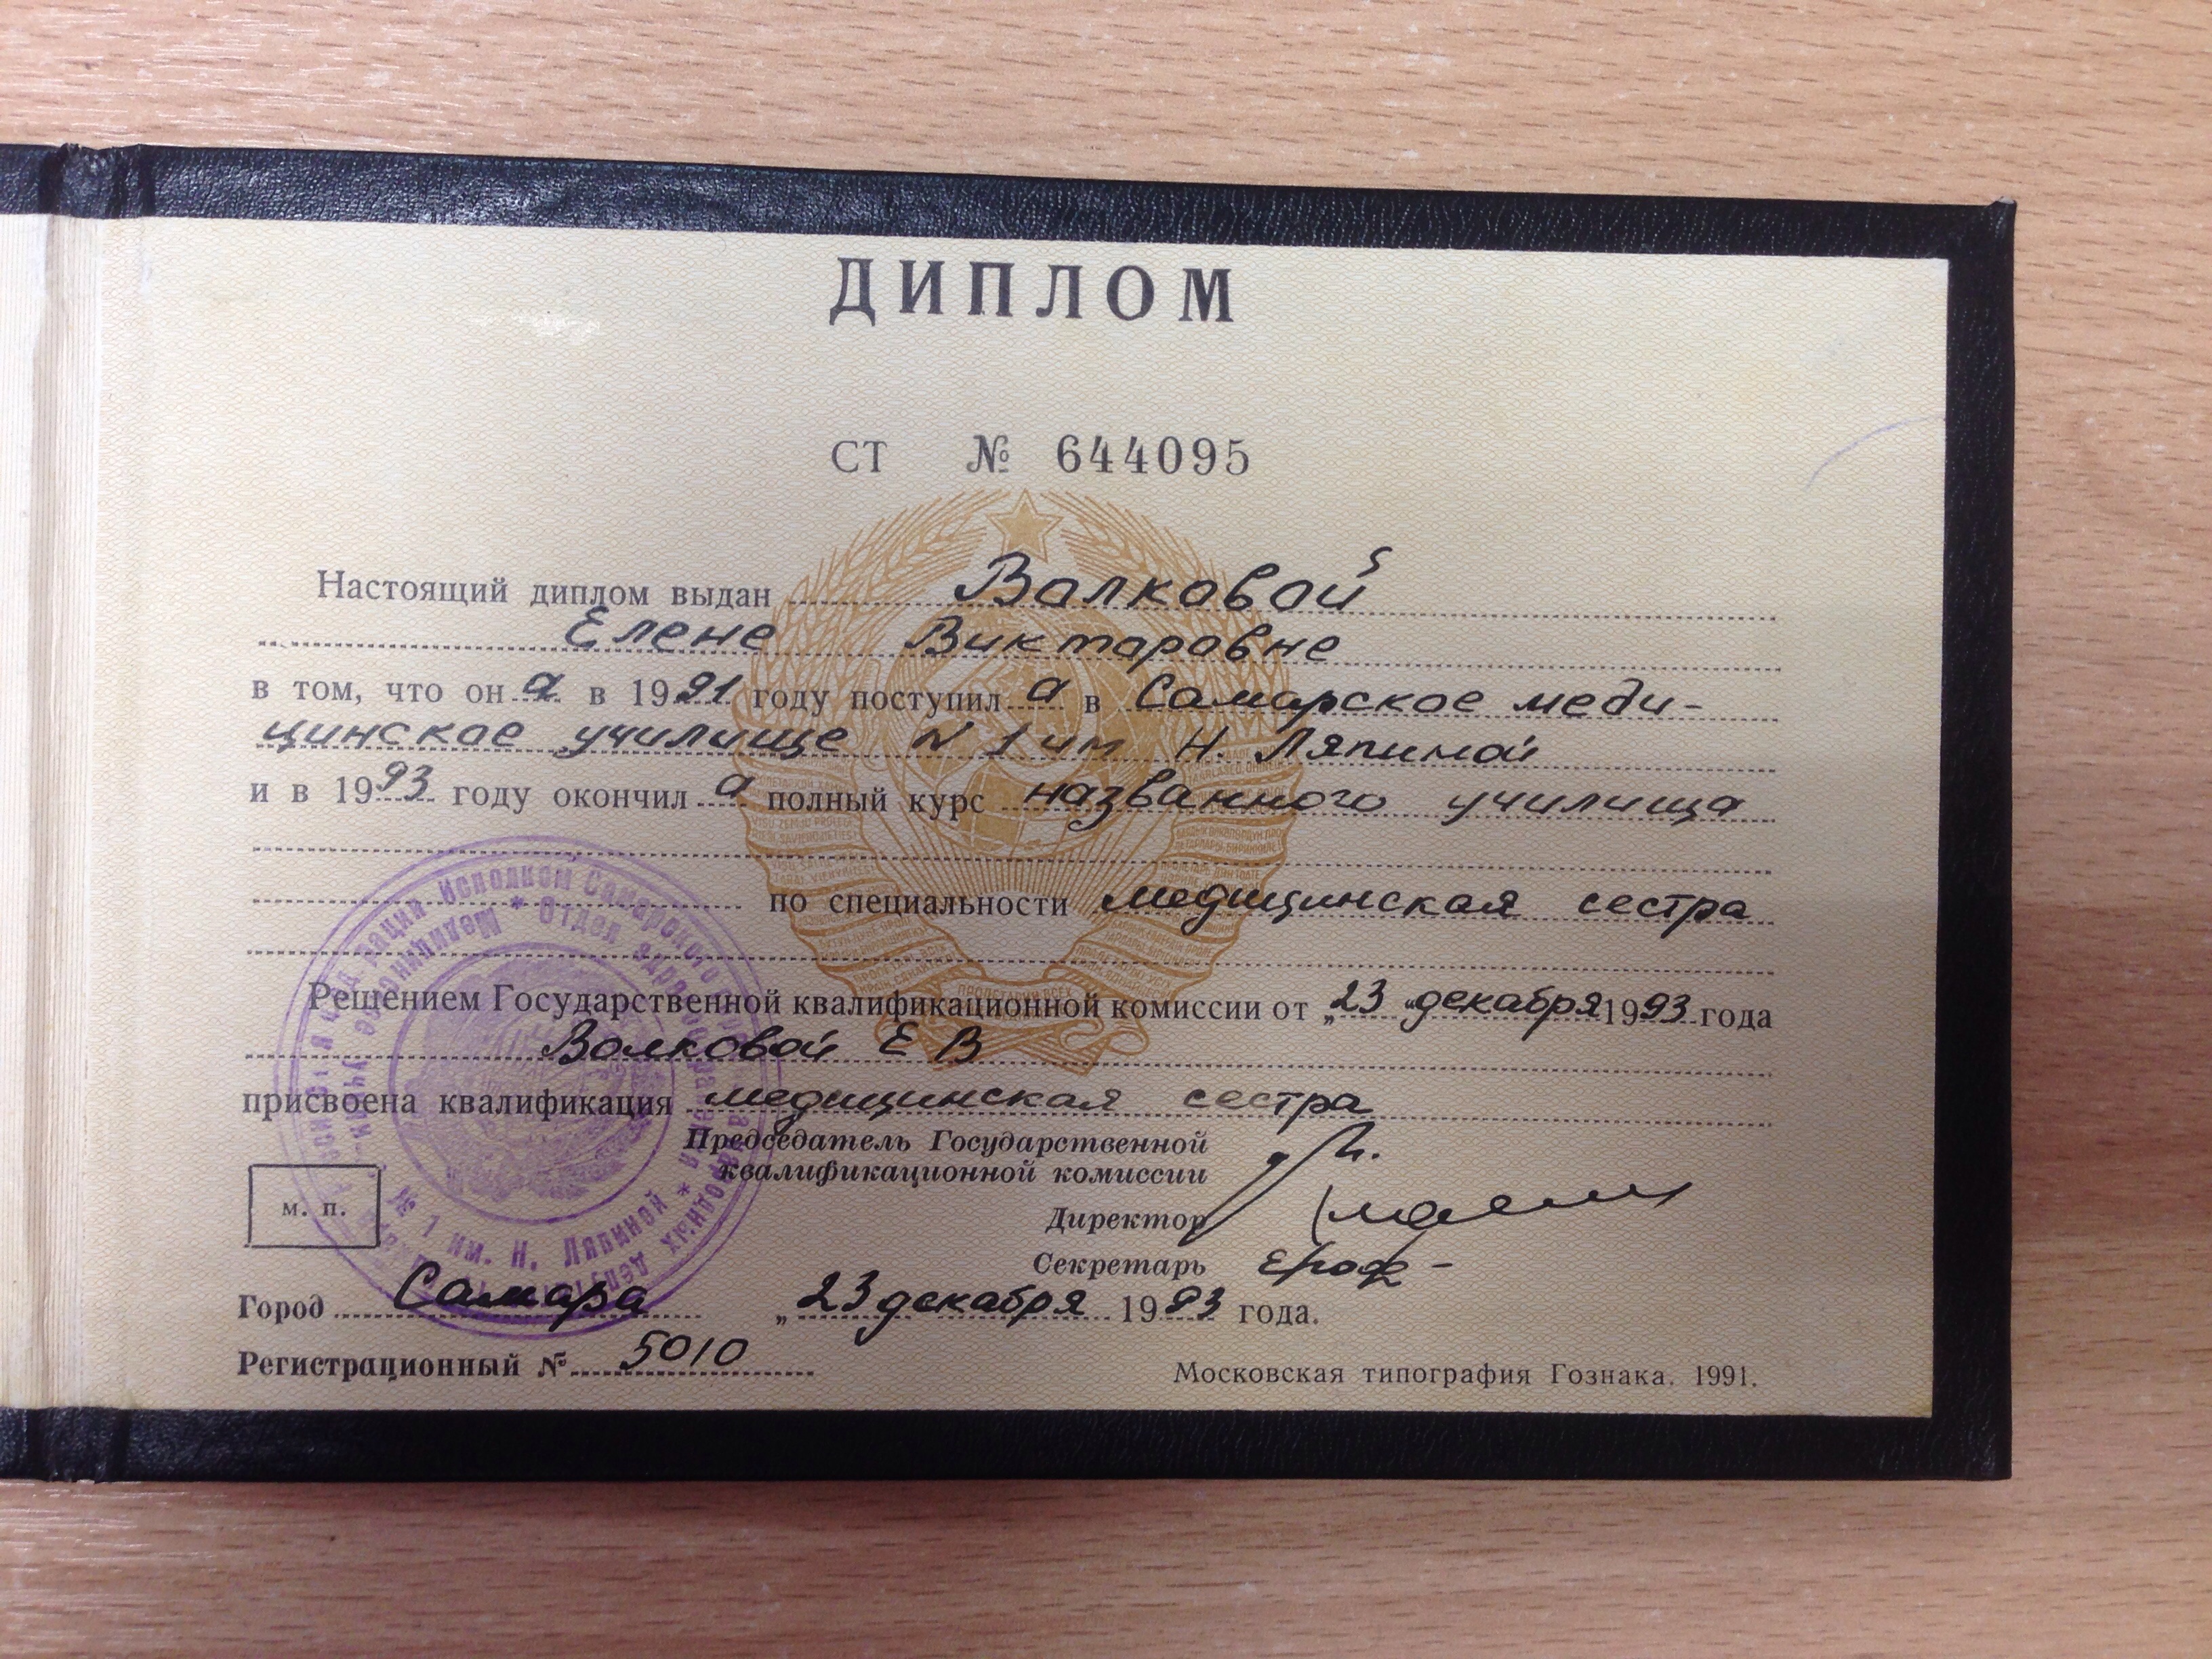 ДИПЛОМ
СТ № 644095
Настоящий диплом выдан Волковой
Елене Викторовне
в том, что он а в 1991 году поступил а в Самарское меди-
цинское училище № 1 им Н. Ляпиной
и в 1993 году окончил а полный курс названного училища
по специальности медицинская сестра
Решением Государственной квалификационной комиссии от „23 „ декабря 1993 года
Волковой Е В
присвоена квалификация медицинская сестра
Председатель Государственной
квалификационной комиссии
Директор
Секретарь
м. п.
Город Самара „23 декабря 1993 года.
Регистрационный № 5010
Московская типография Гознака. 1991.
Отдел здравоохранения
Медицинское училище
№ 1 им. Н. Ляпиной